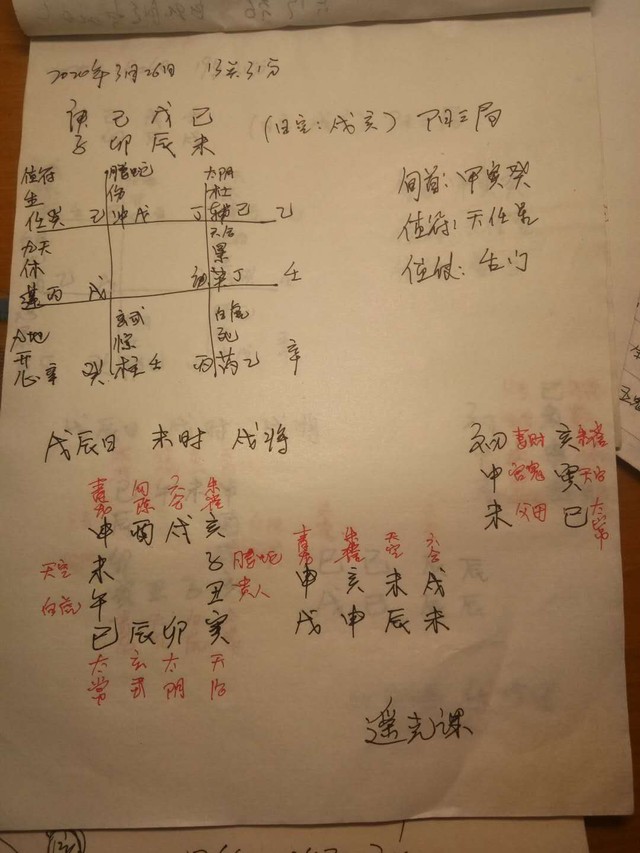 2020年3月26日 13点31分
庚 己 戊 己
子 卯 辰 未
(日空:戌亥) 阳三局
旬首:甲寅癸
值符:天任星
值使:生门
值符 螣蛇 太阴
生 伤 杜
任癸 己 冲戊 丁 辅己 乙
九天 六合
休 景
蓬丙 戊 英丁 壬
九地 玄武 白虎
开 惊 死
心辛 癸 柱壬 丙 芮乙 辛
戊辰日 未时 戌将
青龙 勾陈 六合 朱雀
申 酉 戌 亥
天空 未 子 螣蛇
白虎 午 丑 贵人
巳 辰 卯 寅
太常 玄武 太阴 天后
青龙 朱雀 天空 六合
申 亥 未 戌
戊 申 辰 未
妻财 亥 朱雀
申 官鬼 寅 天后
未 父母 巳 太常
遥克课